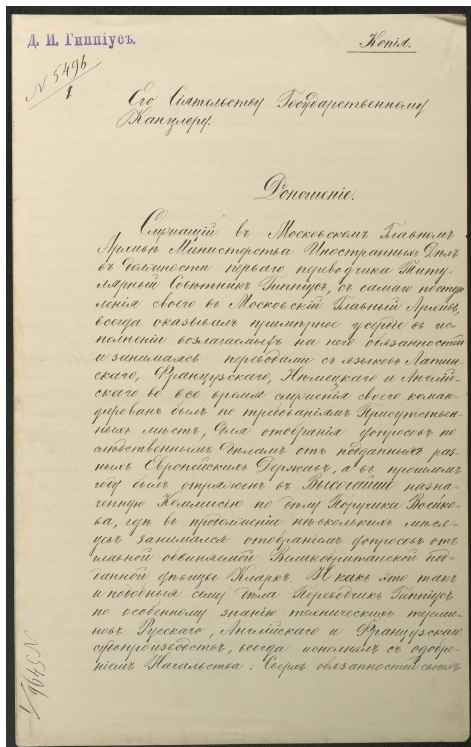 Д. И. Гиппіусъ.
Копія.
N 5496
1
Его Сіятельству Государственному
Канцлеру.
Доношеніе.
Служащій въ Московскомъ Главномъ
Архивѣ Министерства Иностранныхъ Дѣлъ
въ должности перваго переводчика Титу-
лярный Совѣтникъ Гиппіусъ, съ самаго поступ
ленія своего въ Московскій Главный Архивъ,
всегда оказывалъ примѣрное усердіе въ ис-
полненіи возлагаемыхъ на него обязанностей
и занимаясь переводами съ языковъ Латин-
скаго, Французскаго, Нѣмецкаго и Англій-
скаго во все время служенія своего коман-
дированъ былъ по требованіямъ Присутствен-
ныхъ мѣстъ, для отобранія допросовъ по
слѣдственнымъ дѣламъ отъ подданныхъ раз-
ныхъ Европейскихъ Державъ, а въ прошломъ
году былъ отряженъ въ Высочайше назна-
ченную Коммисію по дѣлу Поручика Войко-
ва, гдѣ въ продолженіи нѣсколькихъ мѣся-
цевъ занимался отобраніемъ допросовъ отъ
главной обвиняемой Великобританской под-
данной дѣвицы Кларкъ. И какъ это такъ
и подобныя сему дѣла Переводчикъ Гиппіусъ
по особенному знанію техническихъ терми-
новъ Русскаго, Англійскаго и Французскаго
судопроизводствъ, всегда исполнялъ съ одобре-
ніемъ Начальства. Сверхъ обязанностей своихъ
N 5496
1